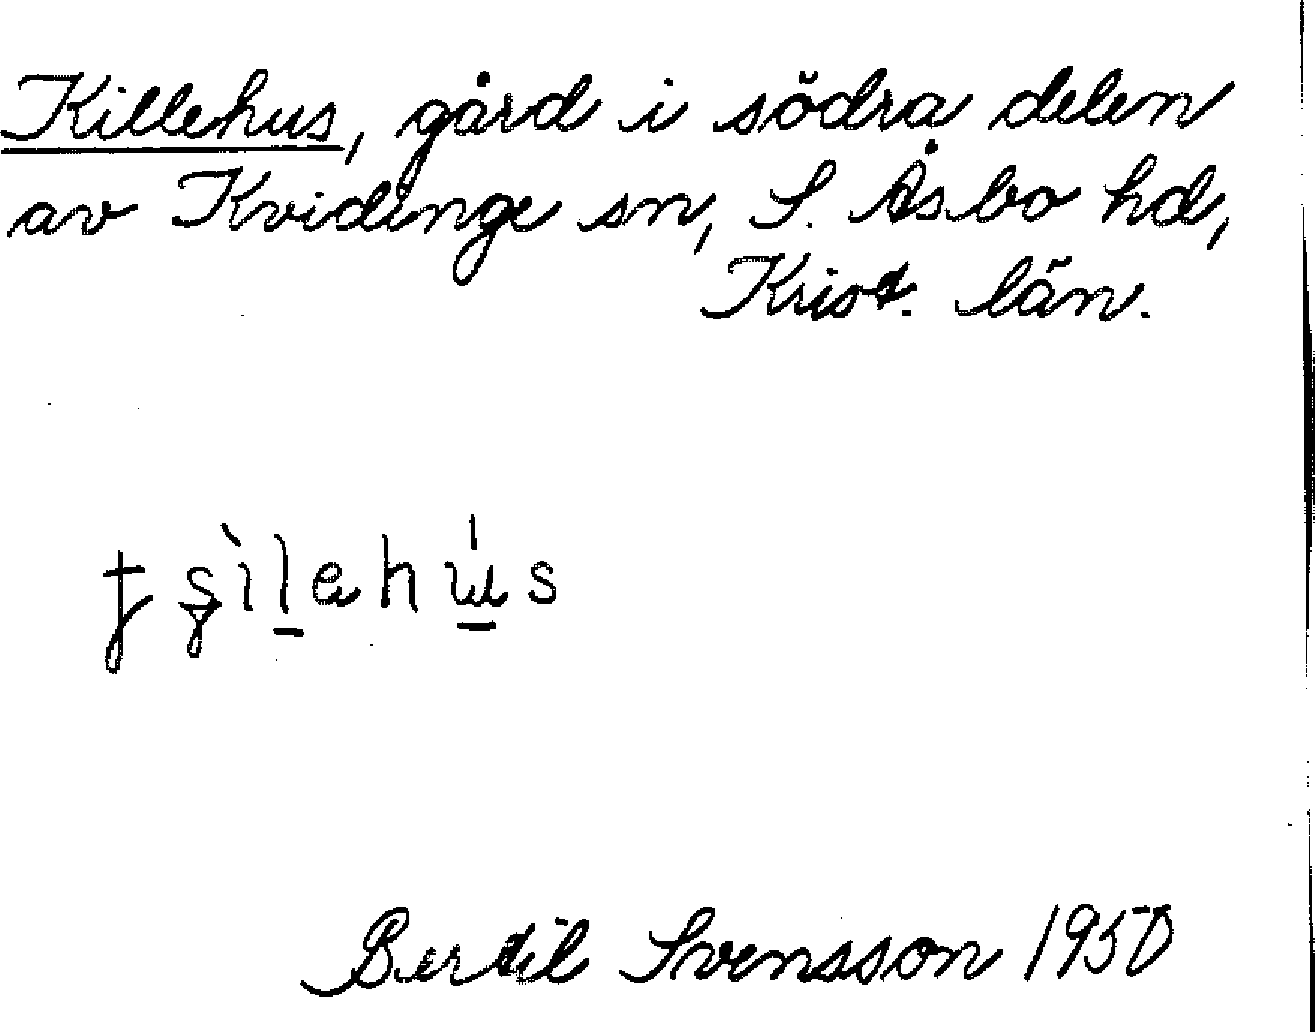 Killehus, gård i södra delen
av Kvidinge sn, S. Åsbo hd,
Krist. län.
tşìlehús
Bertil Svensson 1950